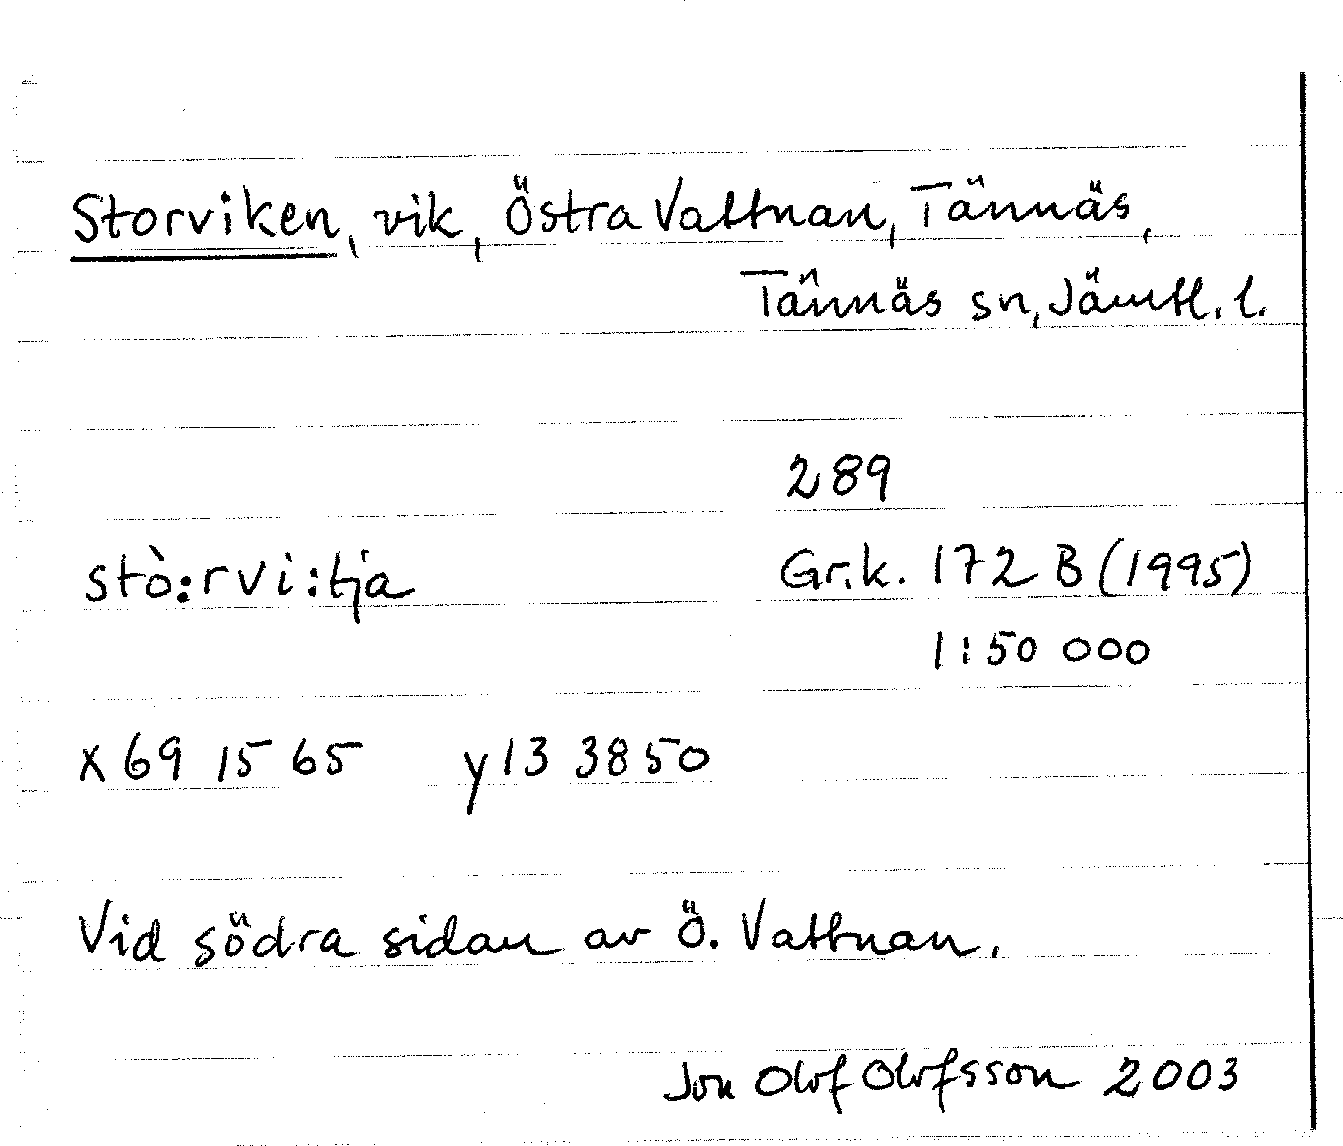 Storviken, vik, Östra Vattnan, Tännäs,
Tännäs sn, Jämtl. l.
289
stò:rvi:tja
Gr.k. 172 B (1995)
1:50 000
x 69 15 65 y 13 38 50
Vid södra sidan av Ö. Vattnan.
Jon Olof Olofsson 2003